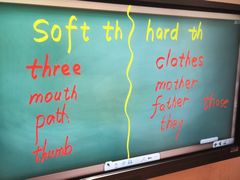 Soft th
hard th
three
mouth
path
thumb
clothes
mother
father those
they